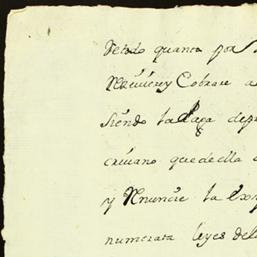 De todo quanto por
Rsiuiere y Cobrare a
siendo la Paga de pre
criuano que de ella
y Renuncie la exsep
numerata leyes dela